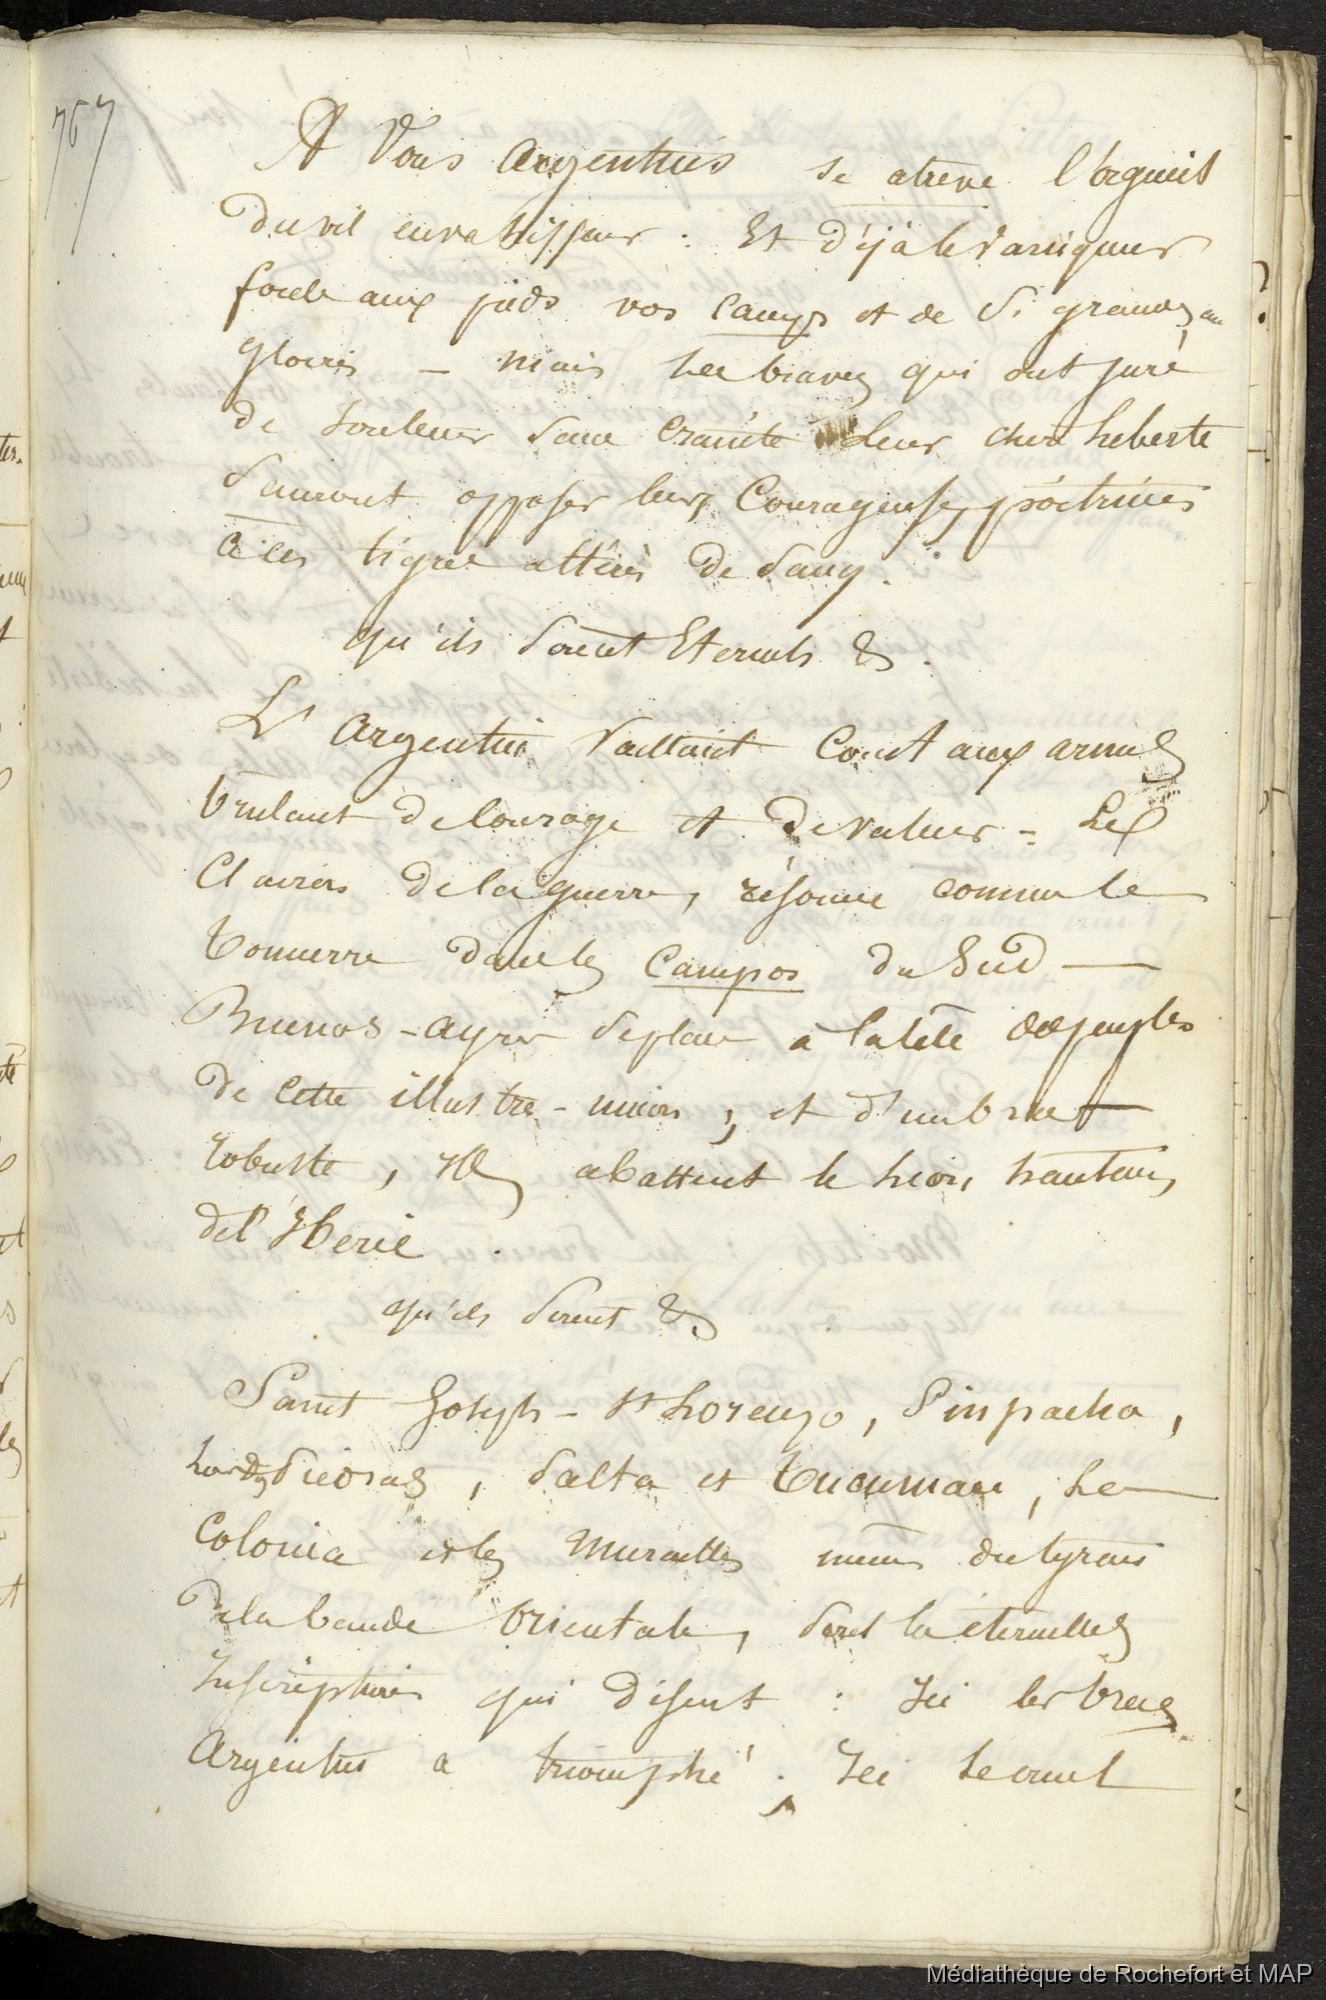 767
A Vous argentins se atreve l'orgueil
du vil envahisseur : Et déjà le vainqueur
foule aux pieds vos camps et de si grandes
gloires – mais les braves qui ont juré
de soutenir sans crainte leur cher liberte
sauront opposer leurs Courageuses poitrines
à ces tigres altérés de sang.
qu'ils soient Eternels &.
L'argentin vaillant Court aux armes
brulant de Courage et de valeur = Les
Clairon de la guerre, résonne comme le
tonnerre dans les Campos du Sud —
Buenos-ayres se place à la tête des peuples
de cette illustre-union, et d'un bras
robuste, ils abattent le Lion hautain
de l'Iberie.
qu'ils soient &
Saint Joseph – St Lorenzo, Suipacha,
Las Piedras, Salta et Tucuman, La
Colonia et les Murailles mêmes du tyran
de la bande Orientale, sont les éternelles
Inscriptions qui disent : Ici le bras
Argentin a triomphé. Ici le cruel
Médiathèque de Rochefort et MAP